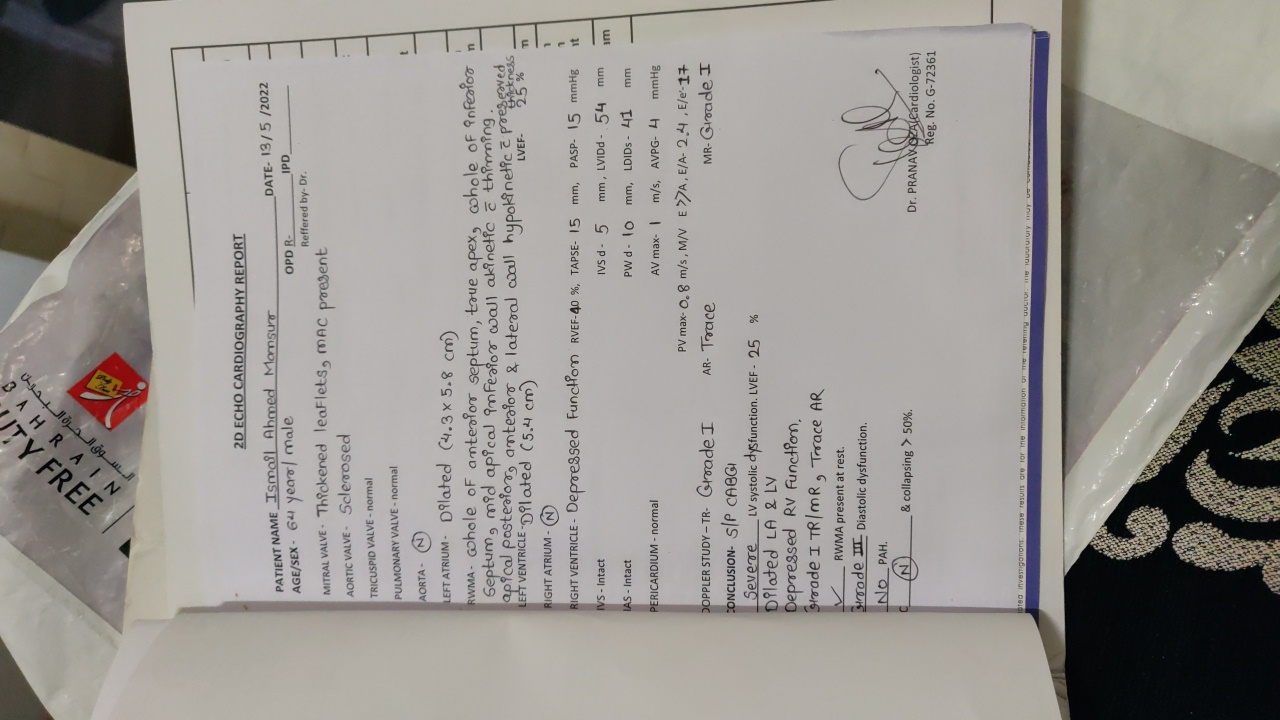 BAHRAIN
DUTY FREE
2D ECHO CARDIOGRAPHY REPORT
PATIENT NAME Ismail Ahmed Mansurr DATE- 13/5/2022
AGE/SEX- 64 year/male OPD R- IPD
Reffered by- Dr.
MITRAL VALVE- Thickened leaflets, MAC present
AORTIC VALVE- Sclerosed
TRICUSPID VALVE - normal
PULMONARY VALVE - normal
AORTA- N
LEFT ATRIUM- Dilated (4.3 x 5.8 cm)
RWMA- whole of anterior septum, true apex, whole of inferior
septum, mid apical inferior wall akinetic c̄ thinning.
apical posterior, anterior & lateral wall hypokinetic c̄ preserved thickness
LEFT VENTRICLE- Dilated (5.4 cm) LVEF- 25 %
RIGHT ATRIUM- N
RIGHT VENTRICLE- Depressed Function RVEF-40 %, TAPSE- 15 mm, PASP- 15 mmHg
IVS - Intact IVS d - 5 mm, LVIDd - 54 mm
IAS - Intact PW d - 10 mm, LDIDs - 41 mm
PERICARDIUM - normal AV max- 1 m/s, AVPG- 4 mmHg
PV max- 0.8 m/s, M/V E>>A, E/A- 2.4, E/e'-17
DOPPLER STUDY – TR- Grade I AR- Trace MR- Grade I
CONCLUSION- S/P CABG
Severe LV systolic dysfunction. LVEF - 25 %
Dilated LA & LV
Depressed RV Function.
Grade I TR/MR, Trace AR
✓ RWMA present at rest.
Grade III Diastolic dysfunction.
No PAH.
N & collapsing > 50%.
Dr. PRANAV OZA(Cardiologist)
Reg. No. G-72361
investigations. These results are for the information of the referring doctor. The laboratory may be